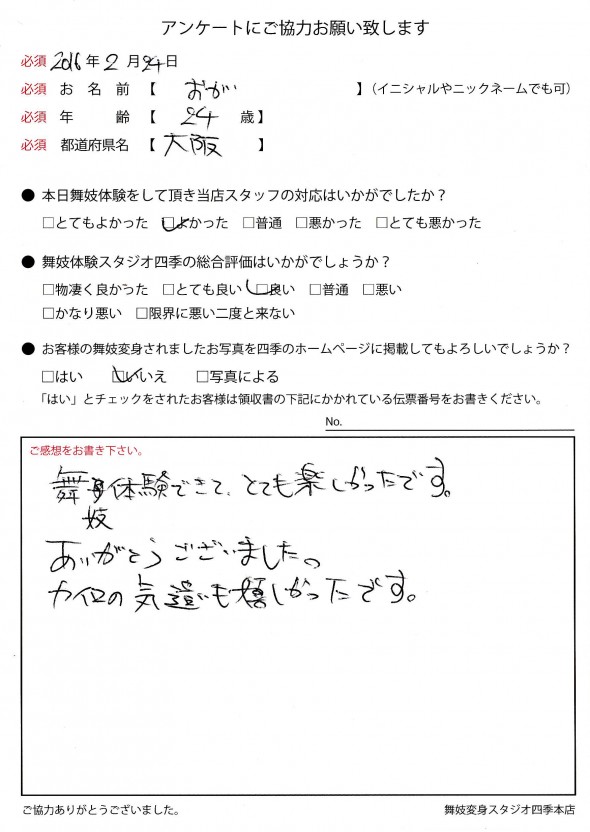 アンケートにご協力お願い致します
必須 2016年2月24日
必須 お名前【 おがい 】（イニシャルやニックネームでも可）
必須 年齢【 24 歳】
必須 都道府県名【 大阪 】
● 本日舞妓体験をして頂き当店スタッフの対応はいかがでしたか？
□とてもよかった □よかった □普通 □悪かった □とても悪かった
● 舞妓体験スタジオ四季の総合評価はいかがでしょうか？
□物凄く良かった □とても良い □良い □普通 □悪い
□かなり悪い □限界に悪い二度と来ない
● お客様の舞妓変身されましたお写真を四季のホームページに掲載してもよろしいでしょうか？
□はい □いいえ □写真による
「はい」とチェックをされたお客様は領収書の下記にかかれている伝票番号をお書きください。
No.
ご感想をお書き下さい。
舞体験できて、とても楽しかったです。
妓
ありがとうございました。
カイロの気遣いも嬉しかったです。
ご協力ありがとうございました。
舞妓変身スタジオ四季本店